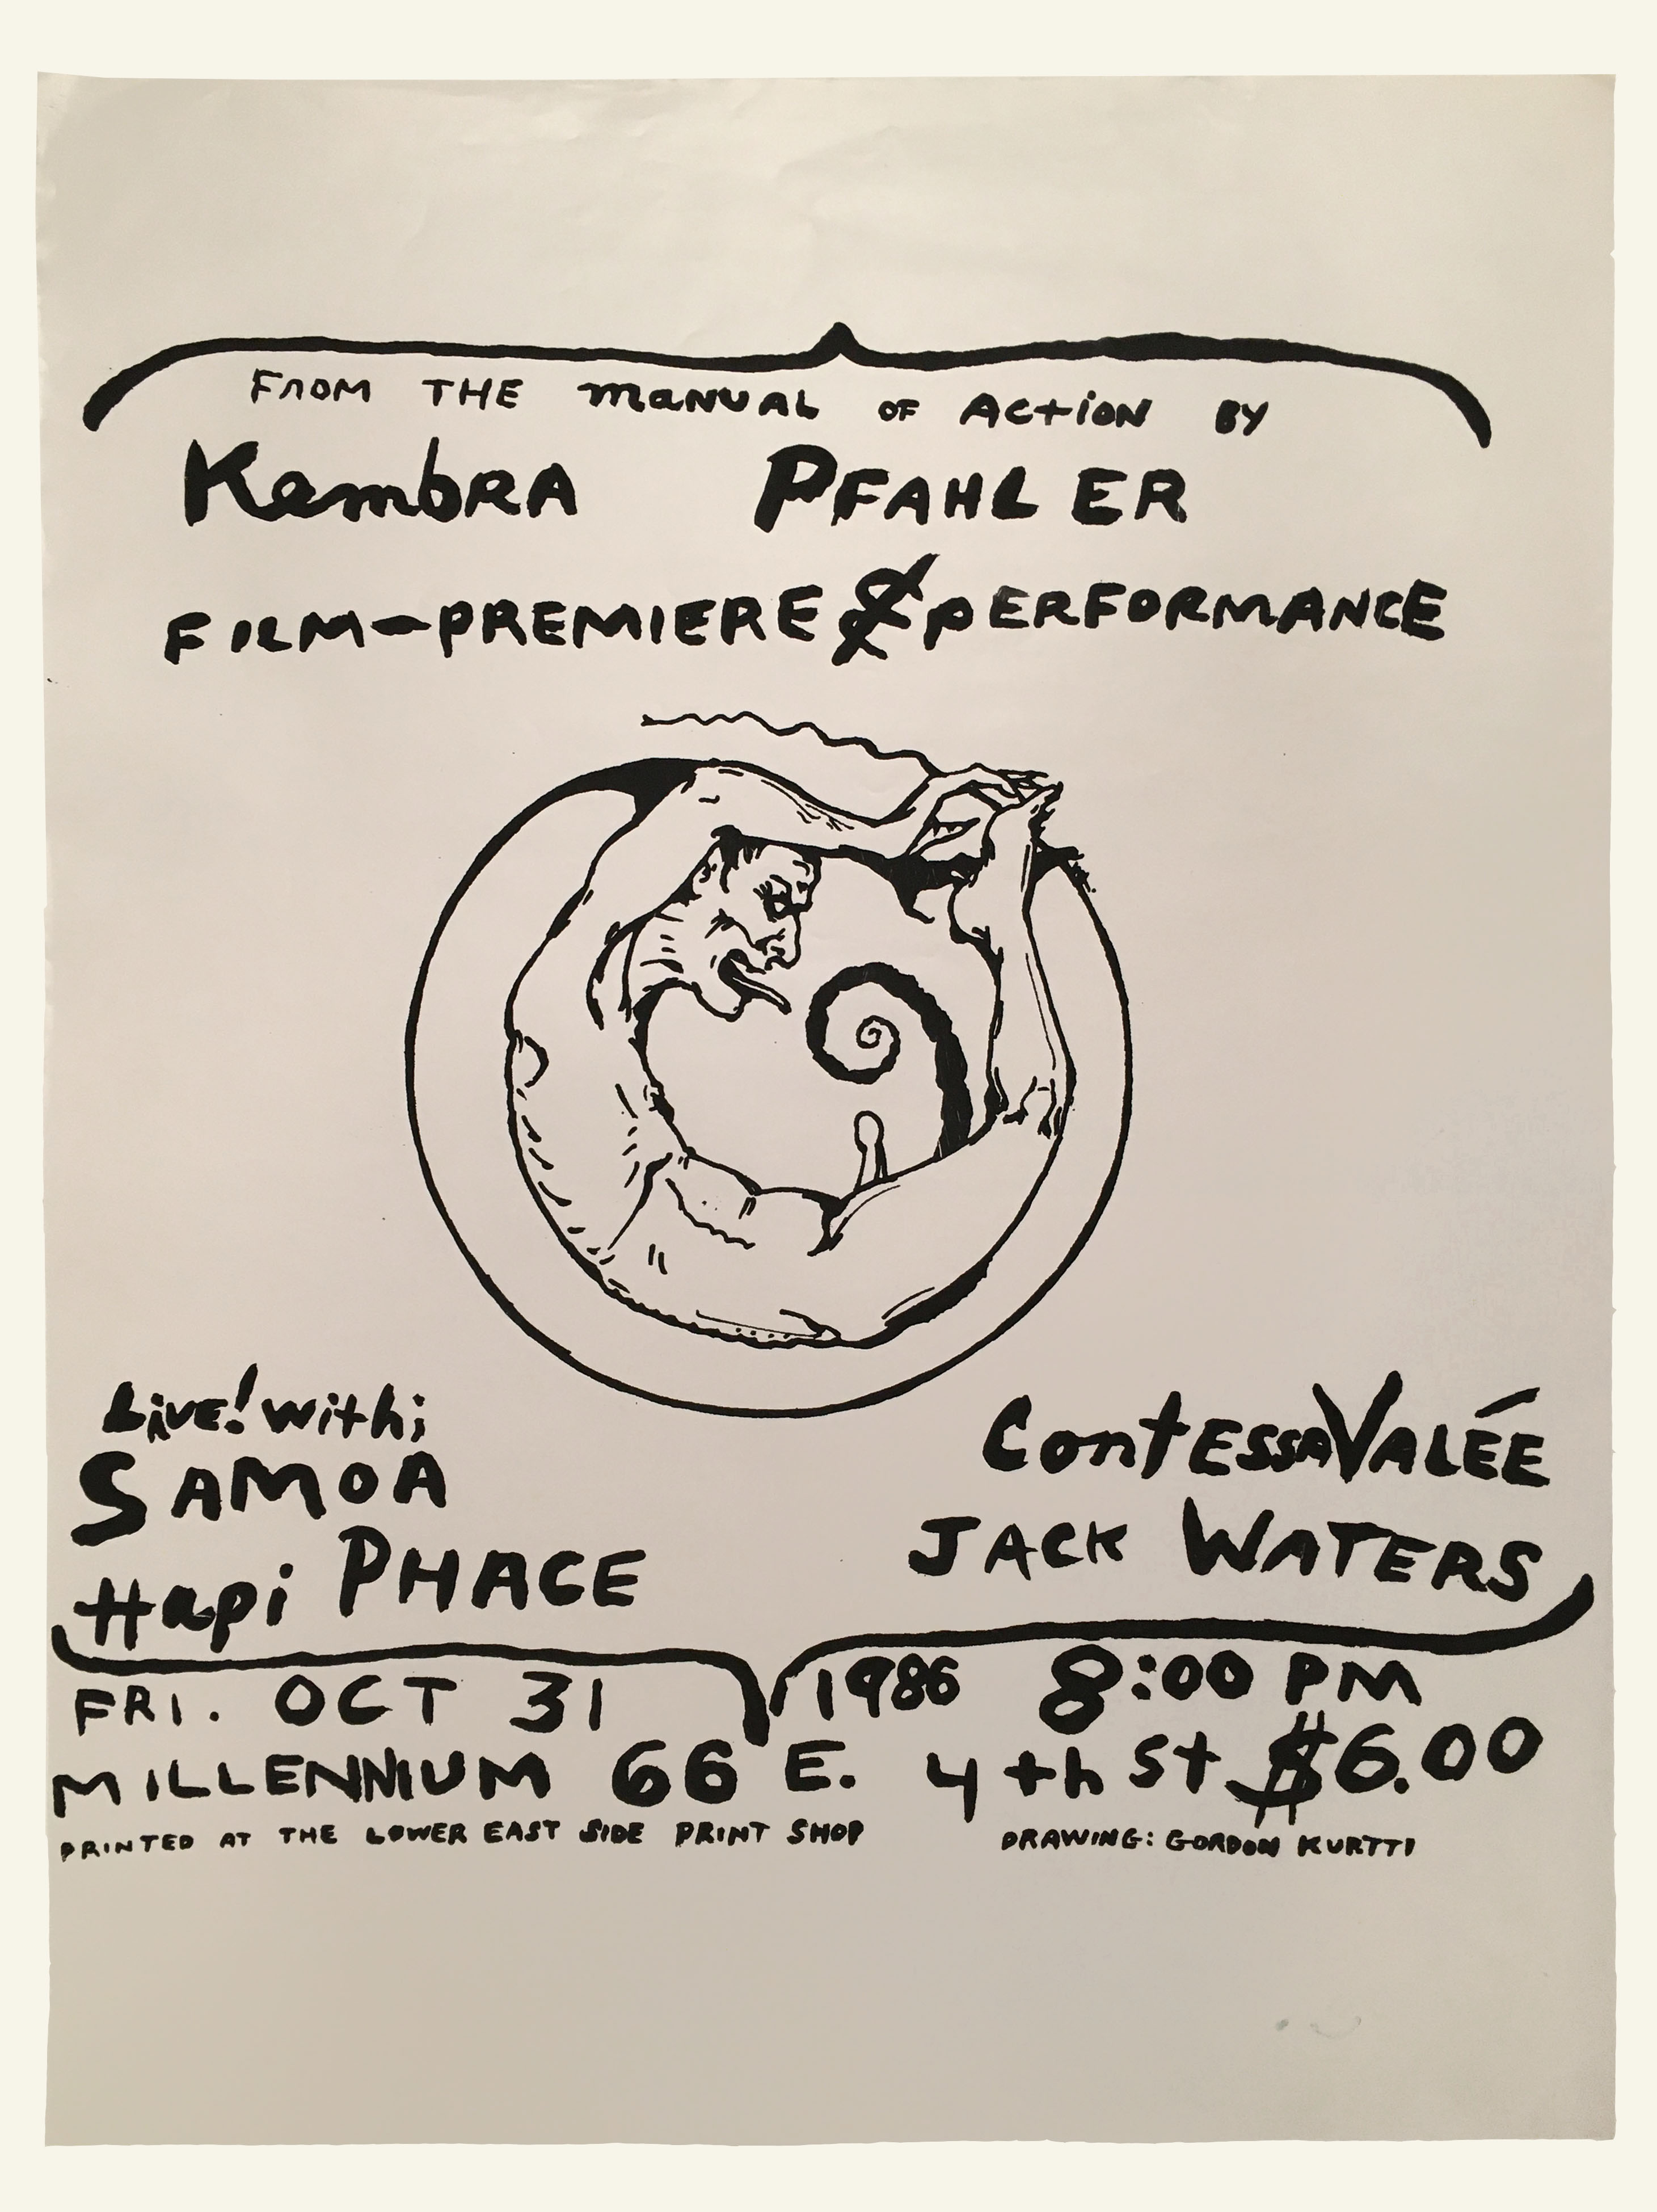 FROM THE manUAL OF ACtiON BY
KembRA PFAHLER
FILM-PREMIERE & pERFORMANCE
Live! with;
SAMOA
Hapi PHACE
ContESSA VALÉE
JACK WATERS
FRI. OCT 31 1986 8:00 PM
MILLENNIUM 66 E. 4th St $6.00
PRINTED AT THE LOWER EAST SIDE PRINT SHOP
DRAWING: GORDON KURTTI